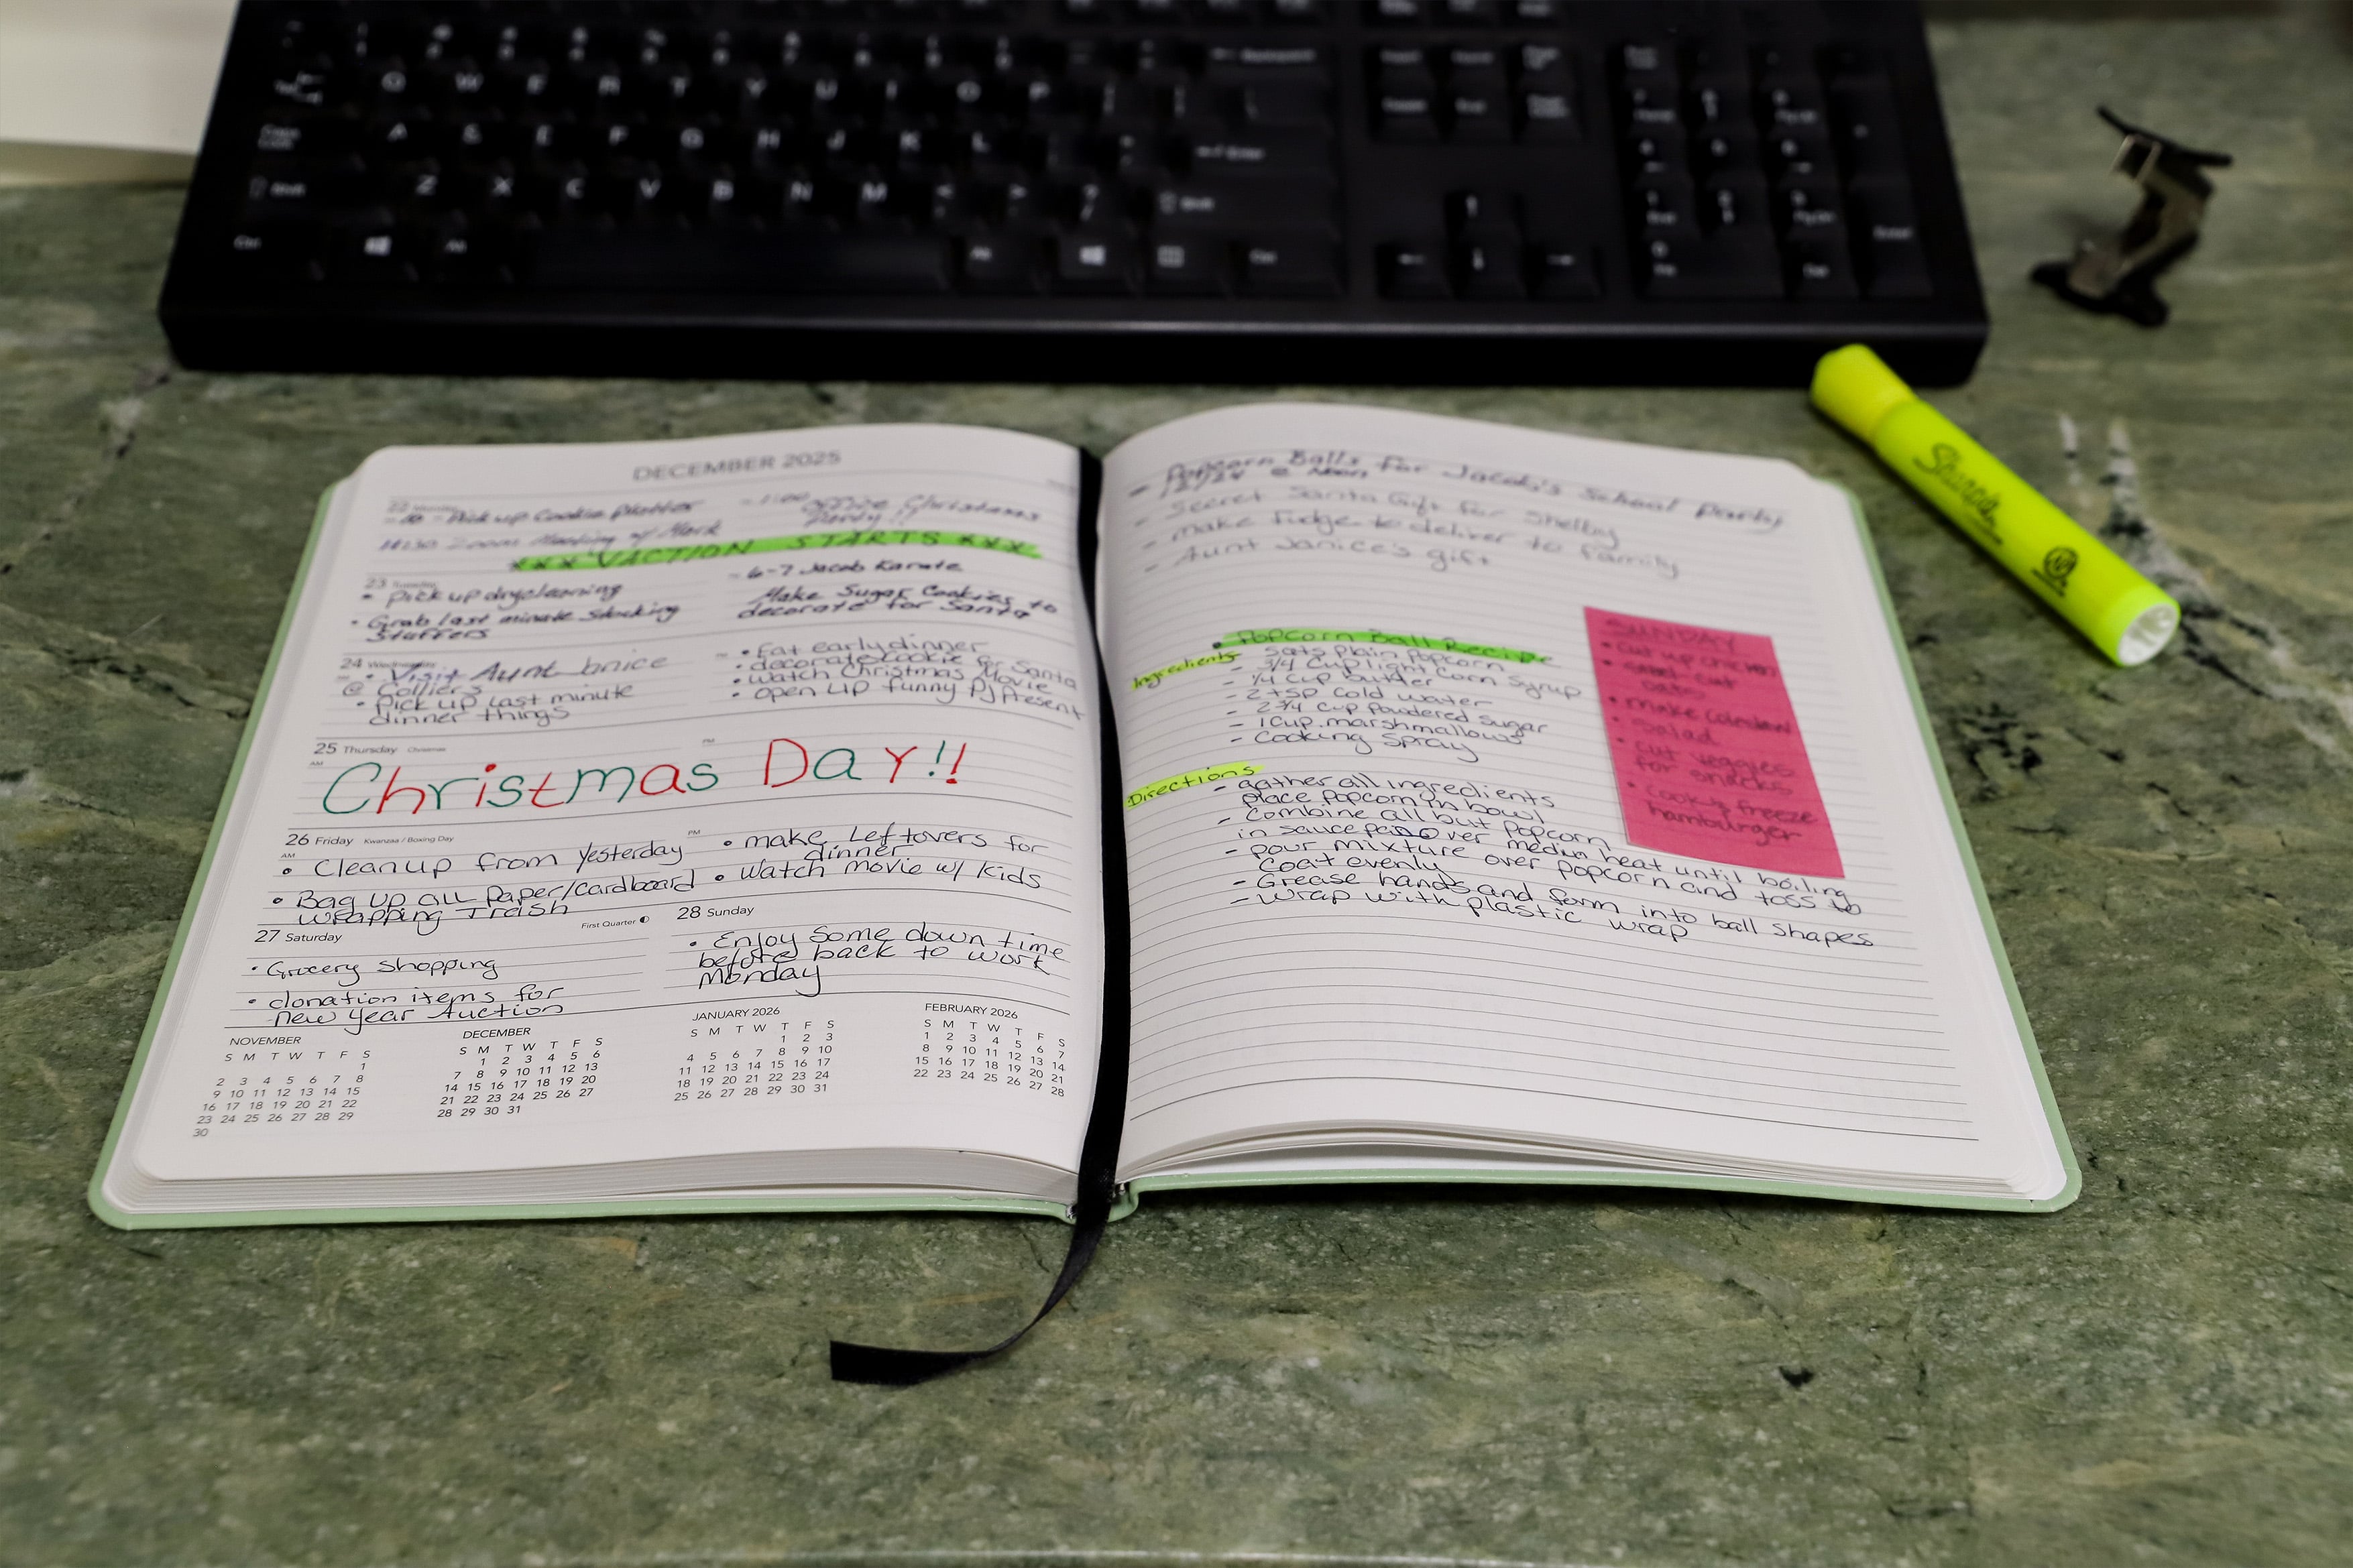 Q W E R T Y U I O P
A S F G H J K L
Z X C V B N M
DECEMBER 2025
- Pick up Cookie Platter
- 1:00 office Christams
Party!!
Zoom Meeting w/ Mark
*** VACTION STARTS ***
23 Tuesday
• Pick up drycleaning
• Grab last minute stocking
stuffers
- 6-7 Jacob Karate
Make Sugar Cookies to
decorate for Santa
24 Wednesday
• Visit Aunt Janice
@ Colliers
• Pick up last minute
dinner things
• Eat early dinner
• decorate cookie for Santa
• watch Christmas Movie
• open up funny PJ Present
25 Thursday Christmas
AM
PM
Christmas Day!!
26 Friday Kwanzaa / Boxing Day
AM
PM
• Clean up from yesterday
• Bag up all Paper/Cardboard
wrapping Trash
• make Leftovers for
dinner
• Watch movie w/ kids
27 Saturday
First Quarter
• Grocery shopping
• donation items for
new year Auction
28 Sunday
• Enjoy Some down time
before back to work
Monday
NOVEMBER
S M T W T F S
1
2 3 4 5 6 7 8
9 10 11 12 13 14 15
16 17 18 19 20 21 22
23 24 25 26 27 28 29
30
DECEMBER
S M T W T F S
1 2 3 4 5 6
7 8 9 10 11 12 13
14 15 16 17 18 19 20
21 22 23 24 25 26 27
28 29 30 31
JANUARY 2026
S M T W T F S
1 2 3
4 5 6 7 8 9 10
11 12 13 14 15 16 17
18 19 20 21 22 23 24
25 26 27 28 29 30 31
FEBRUARY 2026
S M T W T F S
1 2 3 4 5 6 7
8 9 10 11 12 13 14
15 16 17 18 19 20 21
22 23 24 25 26 27 28
- Popcorn Balls for Jacob's School Party
12/24 @ Noon
- Secret Santa Gift for Shelby
- make fudge to deliver to family
- Aunt Janice's gift
• Popcorn Ball Recipe
Ingredients
- 5qts Plain Popcorn
- 3/4 Cup light Corn Syrup
- 1/4 Cup butter
- 2 tsp Cold water
- 2 3/4 Cup Powdered Sugar
- 1 Cup marshmallows
- Cooking Spray
Directions
- gather all ingredients
Place Popcorn in bowl
- Combine all but popcorn
in saucepan over medium heat until boiling
- pour mixture over popcorn and toss to
Coat evenly
- Grease hands and form into ball shapes
- wrap with plastic wrap
SUNDAY
• cut up chicken
• make coleslaw
• Salad
• cut veggies
for snacks
• Cook & freeze
hamburger
Sharpie